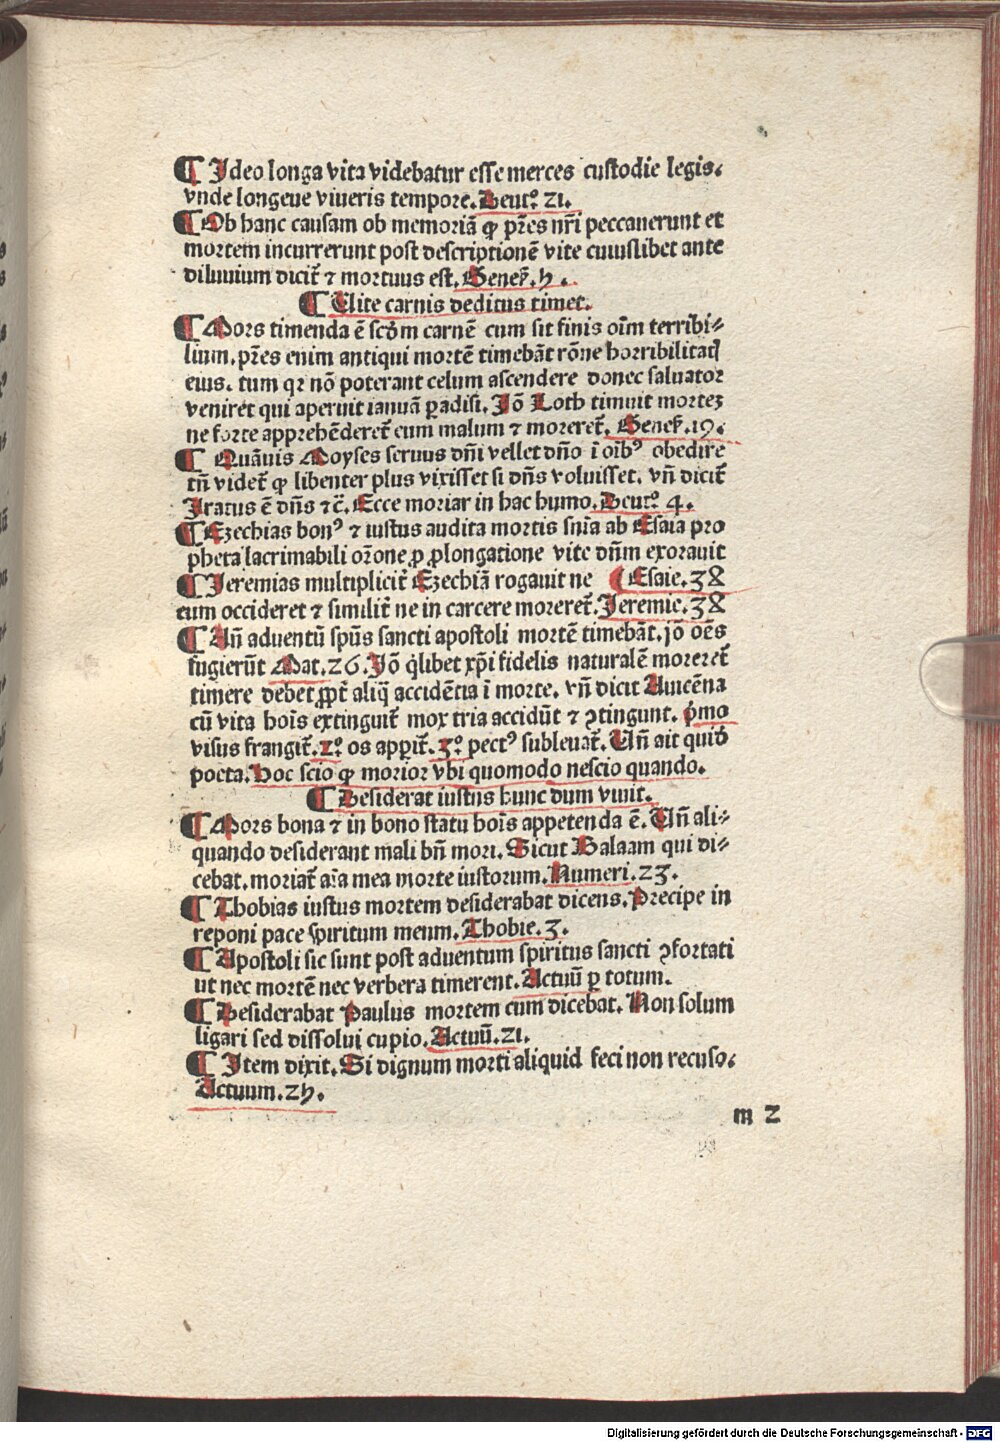 ¶ Ideo longa vita videbatur esse merces custodie legis.
vnde longeue viueris tempore. Deutꝰ. 21.
¶ Ob hanc causam ob memoriā ꝙ pr̄es nr̄i peccauerunt et
mortem incurrerunt post descriptionē vite cuiuslibet ante
diluuium dicit̄ ⁊ mortuus est. Genes̄. 5.
¶ Uite carnis deditus timet.
¶ Mors timenda ē scd̄m carnē cum sit finis oīm terribi⸗
lium. pr̄es enim antiqui mortē timebāt rōne horribilitatꝭ
eius. tum qꝛ nō poterant celum ascendere donec saluator
veniret qui aperuit ianuā ꝑadisi. Iō Loth timuit morteꝫ
ne forte apprehēderet̄ eum malum ⁊ moreret̄. Genes̄. 19.
¶ Quāuis Moyses seruus dn̄i vellet dn̄o ī oībꝰ obedire
tn̄ videt̄ ꝙ libenter plus vixisset si dn̄s voluisset. vn̄ dicit̄
Iratus ē dn̄s ⁊c̄. Ecce moriar in hac humo. Deutꝰ. 4.
¶ Ezechias bonꝰ ⁊ iustus audita mortis sn̄ia ab Esaia pro
pheta lacrimabili or̄one ꝓ ꝓlongatione vite dn̄m exorauit
¶ Ieremias multiplicit̄ Ezechiā rogauit ne ( Esaie. 38
eum occideret ⁊ similit̄ ne in carcere moreret̄. Ieremie. 38
¶ An̄ aduentū spūs sancti apostoli mortē timebāt. iō oēs
fugierūt Mat. 26. Iō q̄libet xp̄i fidelis naturalē moreret̄
timere debet ꝓpt̄ aliq̄ accidētia ī morte. vn̄ dicit Auicēna
cū vita hoīs extinguit̄ mox tria accidūt ⁊ ꝯtingunt. p̄mo
visus frangit̄. 2ꝰ. os apꝑit̄. 3ꝰ. pectꝰ subleuat̄. Un̄ ait quidā
poeta. Hoc scio ꝙ morior vbi quomodo nescio quando.
¶ Desiderat iustus hunc dum viuit.
¶ Mors bona ⁊ in bono statu hoīs appetenda ē. Un̄ ali⸗
quando desiderant mali bn̄ mori. Sicut Balaam qui di⸗
cebat. moriat̄ aīa mea morte iustorum. Numeri. 23.
¶ Thobias iustus mortem desiderabat dicens. Precipe in
reponi pace spiritum meum. Thobie. 3.
¶ Apostoli sic sunt post aduentum spiritus sancti ꝯfortati
ut nec mortē nec verbera timerent. Actuū ꝑ totum.
¶ Desiderabat Paulus mortem cum dicebat. Non solum
ligari sed dissolui cupio. Actuū. 21.
¶ Item dixit. Si dignum morti aliquid feci non recuso.
Actuum. 25.
m 2
Digitalisierung gefördert durch die Deutsche Forschungsgemeinschaft - DFG